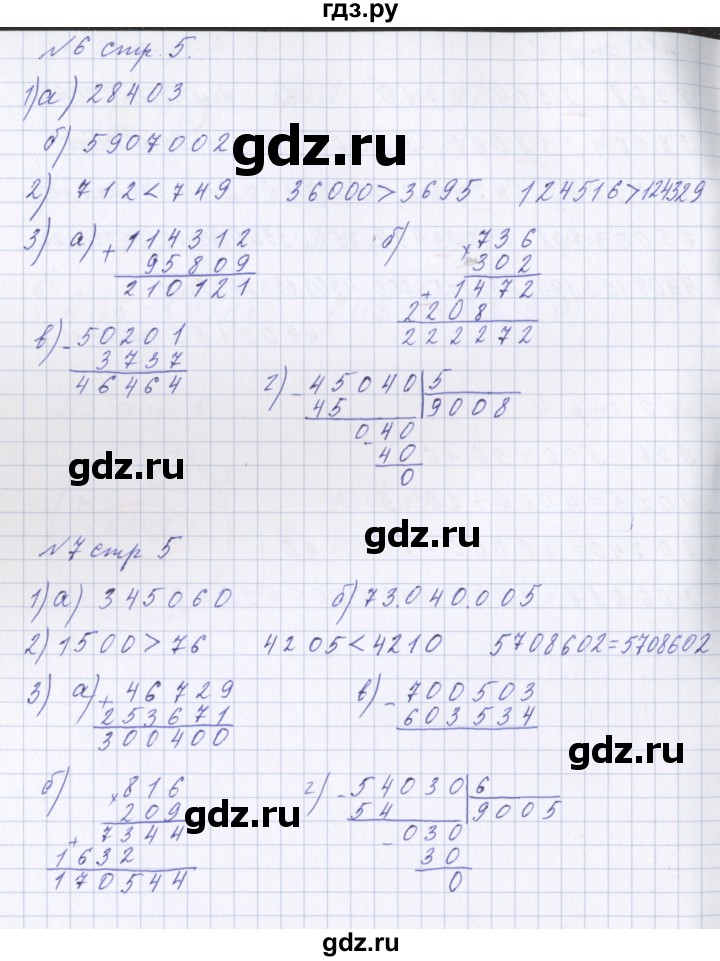 гдз.ру
№6 стр. 5.
1) а) 28403
б) 5907002
gdz.ru
2) 712 < 749 36000 > 3695 124516 > 124329
3) а) + 114312
95809
210121
б) × 736
302
+ 1472
2208
222272
в) - 50201
3737
46464
г) - 45040 5
45 9008
- 040
40
0
gdz.ru
gdz.ru
№7 стр 5
1) а) 345060 б) 73.040.005
2) 1500 > 76 4205 < 4210 5708602 = 5708602
3) а) + 46729
253671
300400
в) - 700503
603534
gdz.ru
б) × 816
209
+ 7344
1632
170544
gdz.ru
г) - 54030 6
54 9005
- 030
30
0
gdz.ru